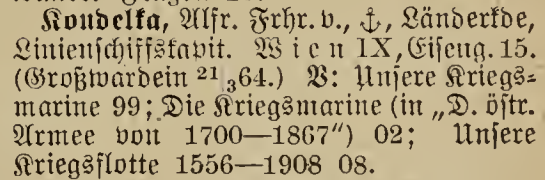 Koudelka, Alfr. Frhr. v., ⚓, Länderkde,
Linienschiffskapit. Wien IX, Eiseng. 15.
(Großwardein ²¹ ₃64.) V: Unsere Kriegs=
marine 99; Die Kriegsmarine (in „D. östr.
Armee von 1700—1867“) 02; Unsere
Kriegsflotte 1556—1908 08.